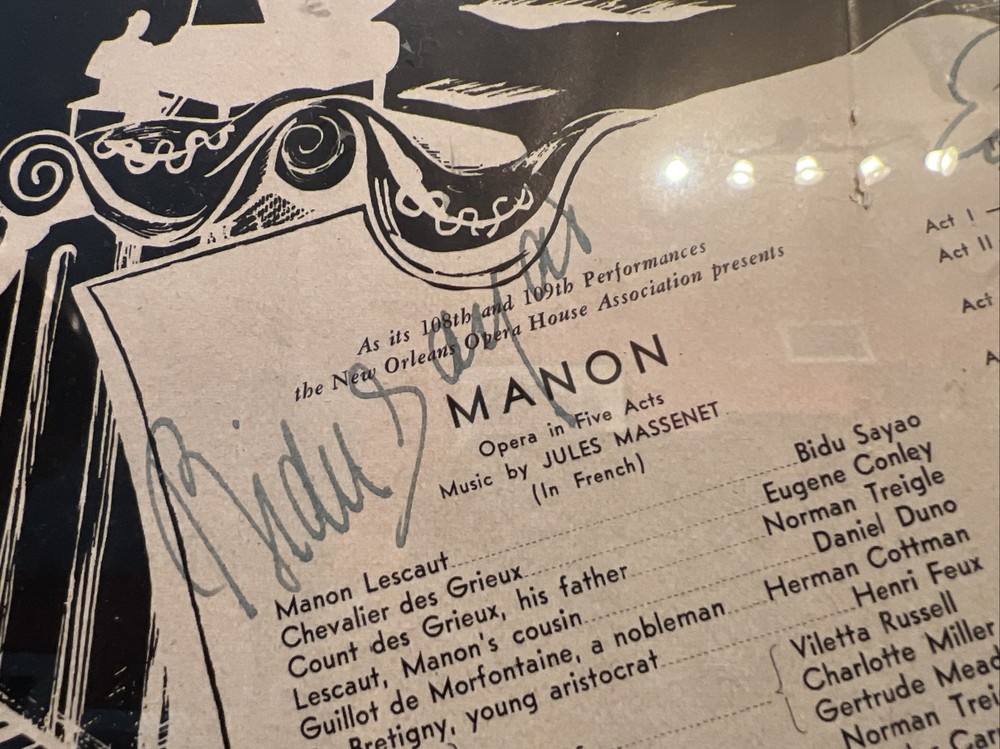 As its 108th and 109th Performances
the New Orleans Opera House Association presents
MANON
Opera in Five Acts
Music by JULES MASSENET
(In French)
Bidu Sayao
Manon Lescaut Bidu Sayao
Chevalier des Grieux Eugene Conley
Count des Grieux, his father Norman Treigle
Lescaut, Manon's cousin Daniel Duno
Guillot de Morfontaine, a nobleman Herman Cottman
Bretigny, young aristocrat Henri Feux
Viletta Russell
Charlotte Miller
Gertrude Mead
Norman Trei
Car
Act I
Act II
Act